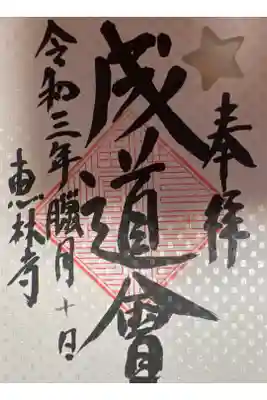 奉拝
成道會
令和三年臘月十日
恵林寺